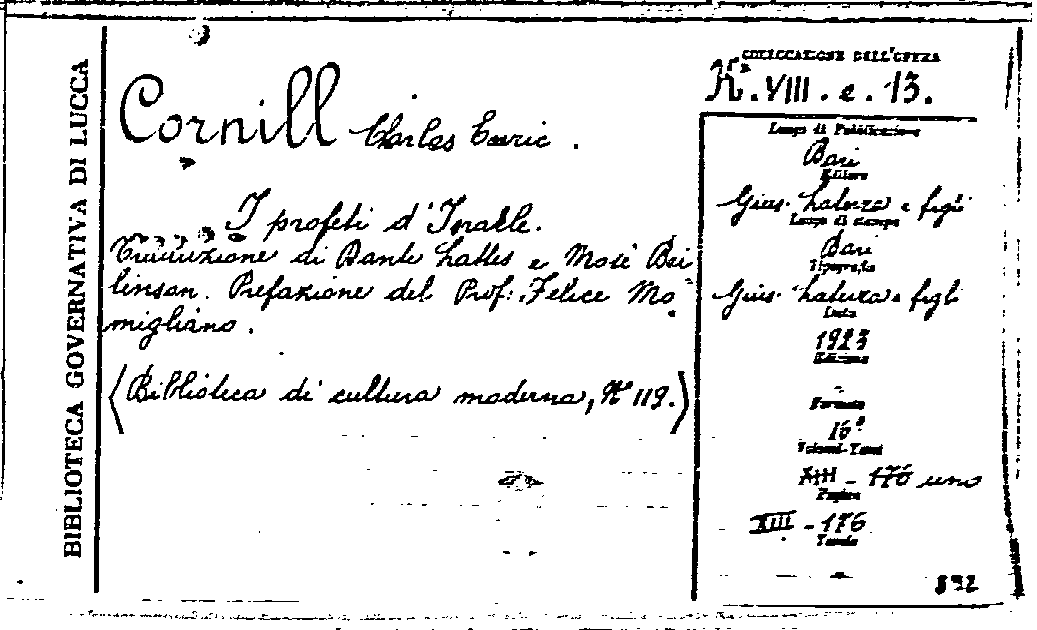 BIBLIOTECA GOVERNATIVA DI LUCCA
Cornill Charles Enric.
I profeti d'Israele.
Traduzione di Dante Lattes e Mosè Bei
linson. Prefazione del Prof: Felice Mo
migliano.
(Biblioteca di cultura moderna, N° 119.)
COLLOCAZIONE DELL'OPERA
N. VIII. e. 13.
Luogo di Pubblicazione
Bari
Editore
Gius. Laterza e figli
Luogo di stampa
Bari
Tipografia
Gius. Laterza e figli
Data
1923
Edizione
-
Formato
16°
Volumi-Tomi
XIII - 176 uno
Pagine
XIII - 176
Tavole
-
832